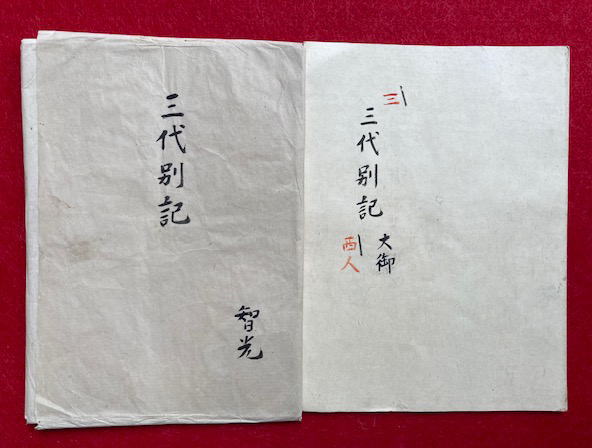 三代別記
智光
三
三代別記
大御
西人